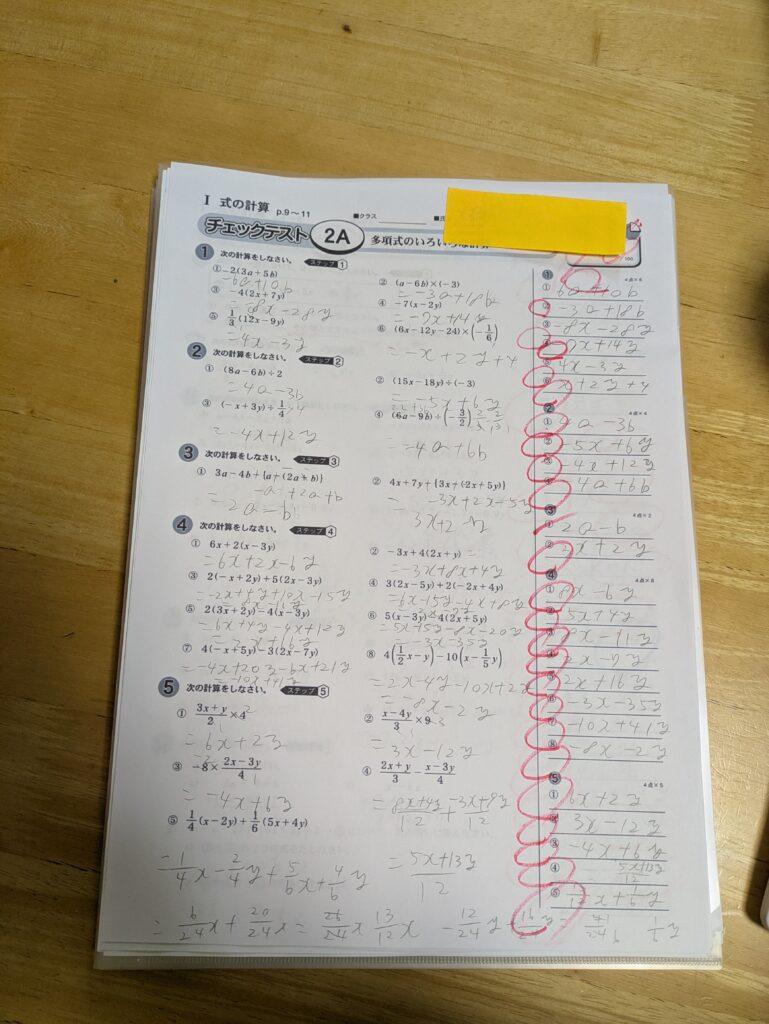 I 式の計算 p.9〜11
■クラス
チェックテスト 2A 多項式のいろいろな計算
/100
1 次の計算をしなさい。 ステップ1
① -2(3a+5b)
② (a-6b)×(-3)
= -3a+18b
③ -4(2x+7y)
= -8x-28y
④ -7(x-2y)
= -7x+14y
⑤ 1/3(12x-9y)
= 4x-3y
⑥ (6x-12y-24)×(-1/6)
= -x+2y+4
2 次の計算をしなさい。 ステップ2
① (8a-6b)÷2
= 4a-3b
② (15x-18y)÷(-3)
= -5x+6y
③ (-x+3y)÷1/4
= -4x+12y
④ (6a-9b)÷(-3/2)
= -4a+6b
3 次の計算をしなさい。 ステップ3
① 3a-4b+{a+(2a+b)}
② 4x+7y+{3x+(-2x+5y)}
4 次の計算をしなさい。 ステップ4
① 6x+2(x-3y)
= 6x+2x-6y
② -3x+4(2x+y)
= -3x+8x+4y
③ 2(-x+2y)+5(2x-3y)
= -2x+4y+10x-15y
④ 3(2x-5y)+2(-2x+4y)
= 6x-15y-4x+8y
⑤ 2(3x+2y)-4(x-3y)
= 6x+4y-4x+12y
= 2x+16y
⑥ 5(x-3y)-4(2x+5y)
= -3x-35y
⑦ 4(-x+5y)-3(2x-7y)
= -4x+20y-6x+21y
= -10x+41y
⑧ 4(1/2x-y)-10(x-1/5y)
= 2x-4y-10x+2y
= -8x-2y
5 次の計算をしなさい。 ステップ5
① (3x+y)/2×4
= 6x+2y
② (x-4y)/3×9
= 3x-12y
③ -8×(2x-3y)/4
= -4x+6y
④ (2x+y)/3-(x-3y)/4
= (8x+4y)/12+(-3x+9y)/12
= (5x+13y)/12
⑤ 1/4(x-2y)+1/6(5x+4y)
= 1/4x-2/4y+5/6x+4/6y
= 6/24x+20/24x=26/24x 13/12x
1 4点×6
② -3a+18b
③ -8x-28y
⑤ 4x-3y
2 4点×4
① 4a-3b
② -5x+6y
③ -4x+12y
④ -4a+6b
3 4点×2
① 2a-b
② 2x+2y
4 4点×8
① 8x-6y
② 5x+4y
③ 8x-11y
④ 2x-7y
⑤ 2x+16y
⑥ -3x-35y
⑦ -10x+41y
⑧ -8x-2y
5 4点×5
① 6x+2y
② 3x-12y
③ -4x+6y
④ (5x+13y)/12